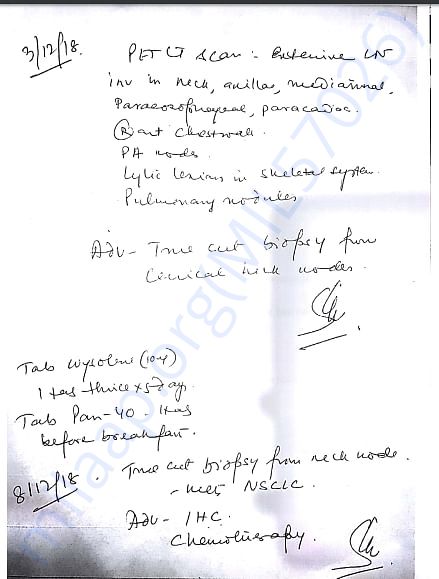 3/12/18. PET CT scan: Extensive LN
inv in neck, axillae, mediastinal,
Paraoesophageal, paracardiac.
(R) ant chestwall.
PA nodes.
Lytic lesions in skeletal system.
Pulmonary nodules
Adv - True cut biopsy from
Cervical neck nodes.
Tab Wysolone (10mg)
1 tab thrice x 5 days.
Tab Pan-40 - 1 tab
before breakfast.
8/12/18. True cut biopsy from neck node.
- mets NSCLC.
Adv - IHC.
Chemotherapy.
(MIL57026)